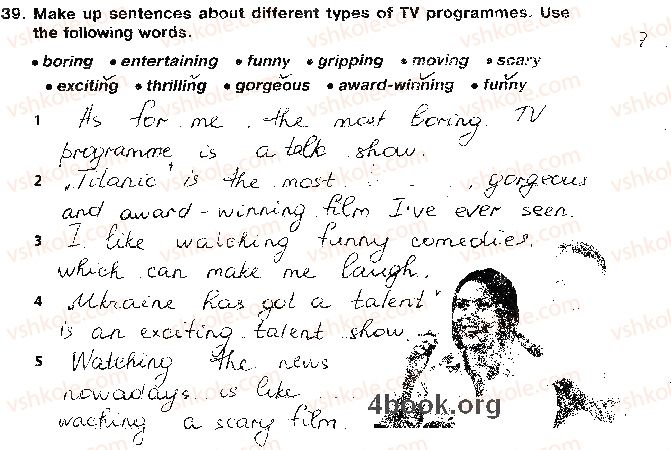 39. Make up sentences about different types of TV programmes. Use
the following words.
• boring • entertaining • funny • gripping • moving • scary
• exciting • thrilling • gorgeous • award-winning • funny
1 As for me, the most boring TV
programme is a talk show.
2 „Titanic" is the most gorgeous
and award-winning film I've ever seen.
3 I like watching funny comedies,
which can make me laugh.
4 „Ukraine has got a talent"
is an exciting talent show.
5 Watching the news
nowadays is like
waching a scary film.
4book.org